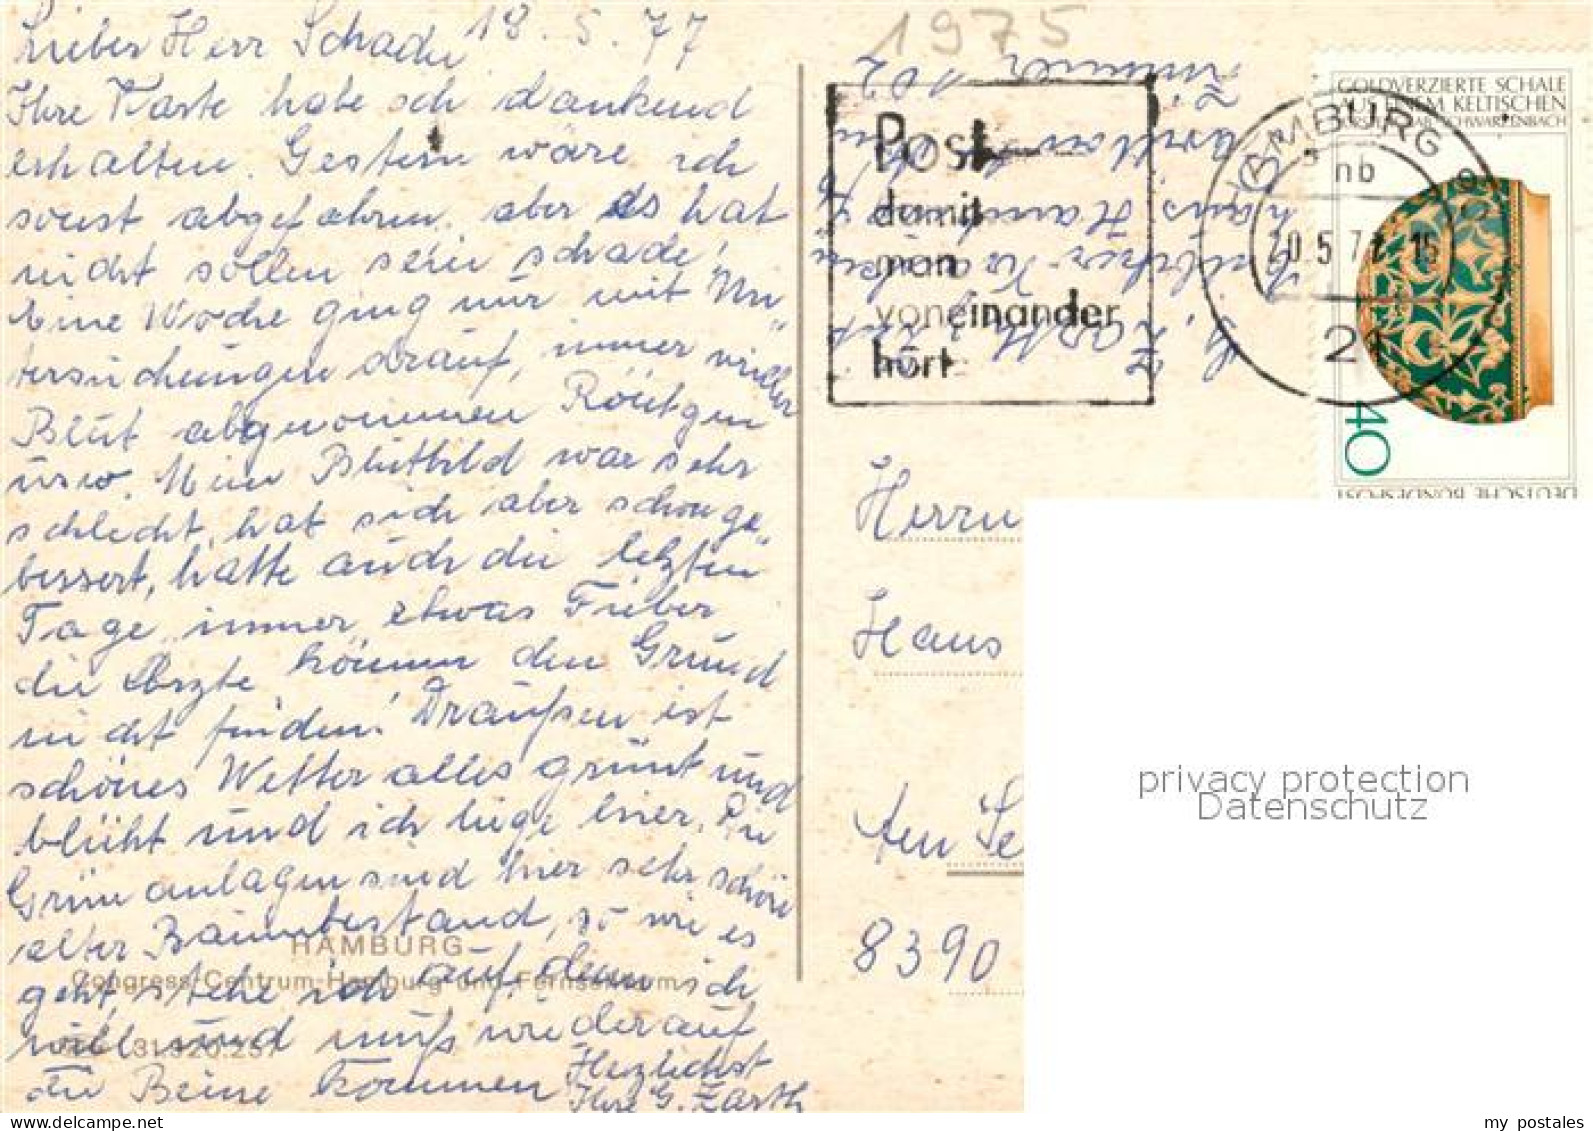 1975
18.5.77
Lieber Herr Schade
Ihre Karte habe ich dankend
erhalten. Gestern wäre ich
sonst abgefahren, aber es hat
nicht sollen sein schade!
Eine Woche ging nur mit Un„
tersuchungen drauf, immer wieder
Blut abgenommen Röntgen
usw. Mein Blutbild war sehr
schlecht, hat sich aber schon ge„
bessert, hatte auch die letzten
Tage immer etwas Fieber
die Ärzte können den Grund
nicht finden! Draußen ist
schönes Wetter alles grünt und
blüht und ich liege hier. Die
Grünanlagen sind hier sehr schön
alter Baumbestand, so wie es
geht, stehe ich auf, denn ich
will und muß wieder auf
die Beine kommen
Herzlichst
Ihre G. Zarth
HAMBURG
Congress-Centrum-Hamburg und Fernsehturm
31.520.257
G. Zarth
Zimmer 102
Post
damit
man
voneinander
hört
HAMBURG
nb
20.5.77-15
21
GOLDVERZIERTE SCHALE
AUS EINEM KELTISCHEN
SCHWARZENBACH
40
DEUTSCHE BUNDESPOST
Herrn
Hans
Am Se
8390
privacy protection
Datenschutz
my postales